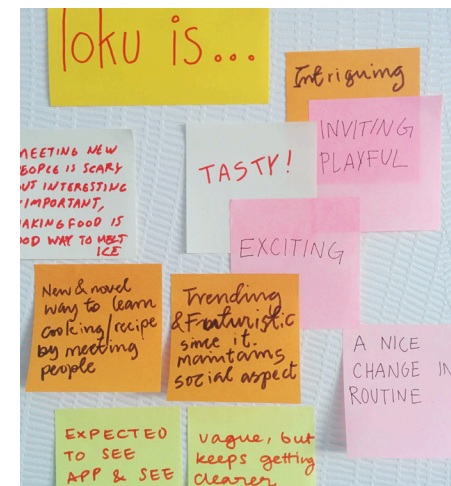 loku is...
Intriguing
INVITING
PLAYFUL
TASTY!
MEETING NEW
PEOPLE IS SCARY
BUT INTERESTING
IMPORTANT,
MAKING FOOD IS
GOOD WAY TO MELT
ICE
EXCITING
New & novel
way to learn
cooking/recipe
by meeting
people
Trending
& Futuristic
since it
maintains
social aspect
A NICE
CHANGE IN
ROUTINE
EXPECTED
TO SEE
APP & SEE
vague, but
keeps getting
clearer